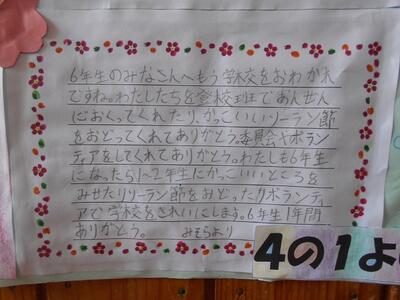 6年生のみなさんへもう学校をおわかれ
ですね。わたしたちを登校班であんぜん
におくってくれたり、かっこいいソーラン節
をおどってくれてありがとう。委員会やボラン
ティアをしてくれてありがとう。わたしも6年生
になったら1〜2年生にかっこいいところを
みせたりソーラン節をおどったりボランティ
アで学校をきれいにします。6年生1年間
ありがとう。 みそらより
4の1よ